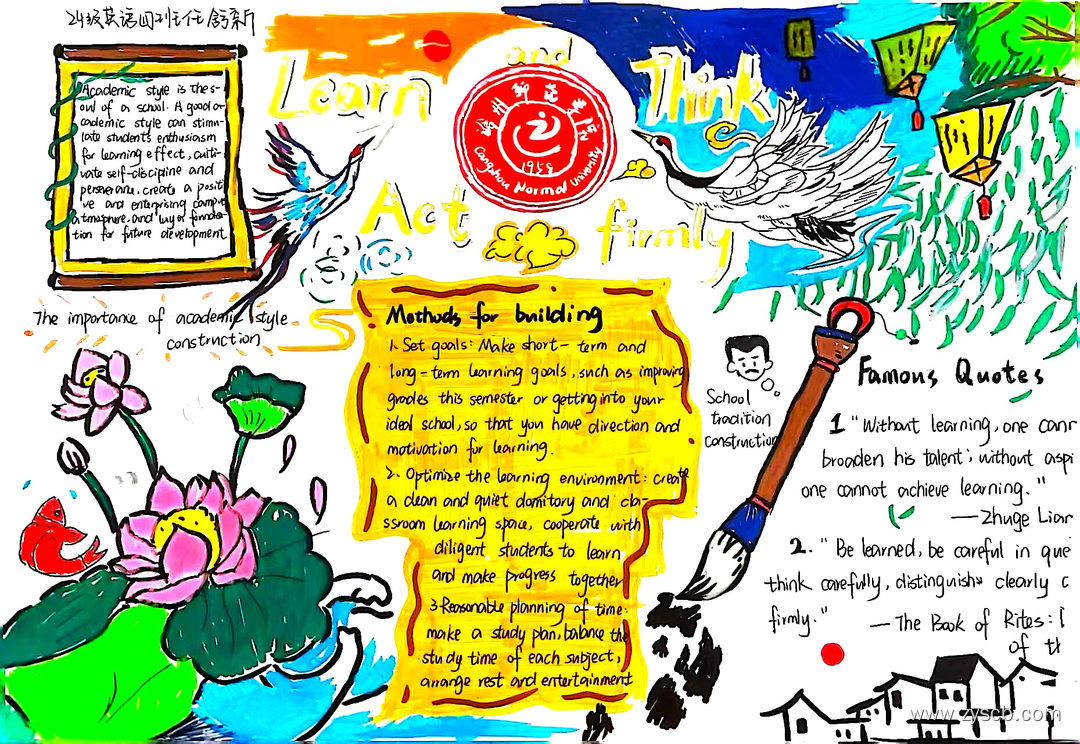 24级英语四班任舒新
Learn and Think
Act firmly
沧州师范学院
1958
Cangzhou Normal University
Academic style is the s-
oul of a school. A good a-
cademic style can stimu-
late students enthusiasm
for learning effect, culti-
vate self-discipline and
perseverane. create a positi-
ve and enterprising campus
atmosphere. and lay a founda-
tion for future development
The importance of academic style
construction
Methods for building
1. Set goals: Make short- term and
long-term learning goals, such as improving
grades this semester or getting into your
ideal school, so that you have direction and
motivation for learning.
2. Optimize the learning environment: create
a clean and quiet domitory and cla-
ssroom learning space, cooperate with
diligent students to learn
and make progress together
3 Reasonable planning of time:
make a study plan, balance the
study time of each subject,
arrange rest and entertainment
School
tradition
construction
Famous Quotes
1 "Without learning, one cann
broaden his talent; without aspi
one cannot achieve learning."
—Zhuge Lian
2. "Be learned, be careful in que
think carefully, distinguish clearly
firmly."
— The Book of Rites:
of th
www.zyscb.com